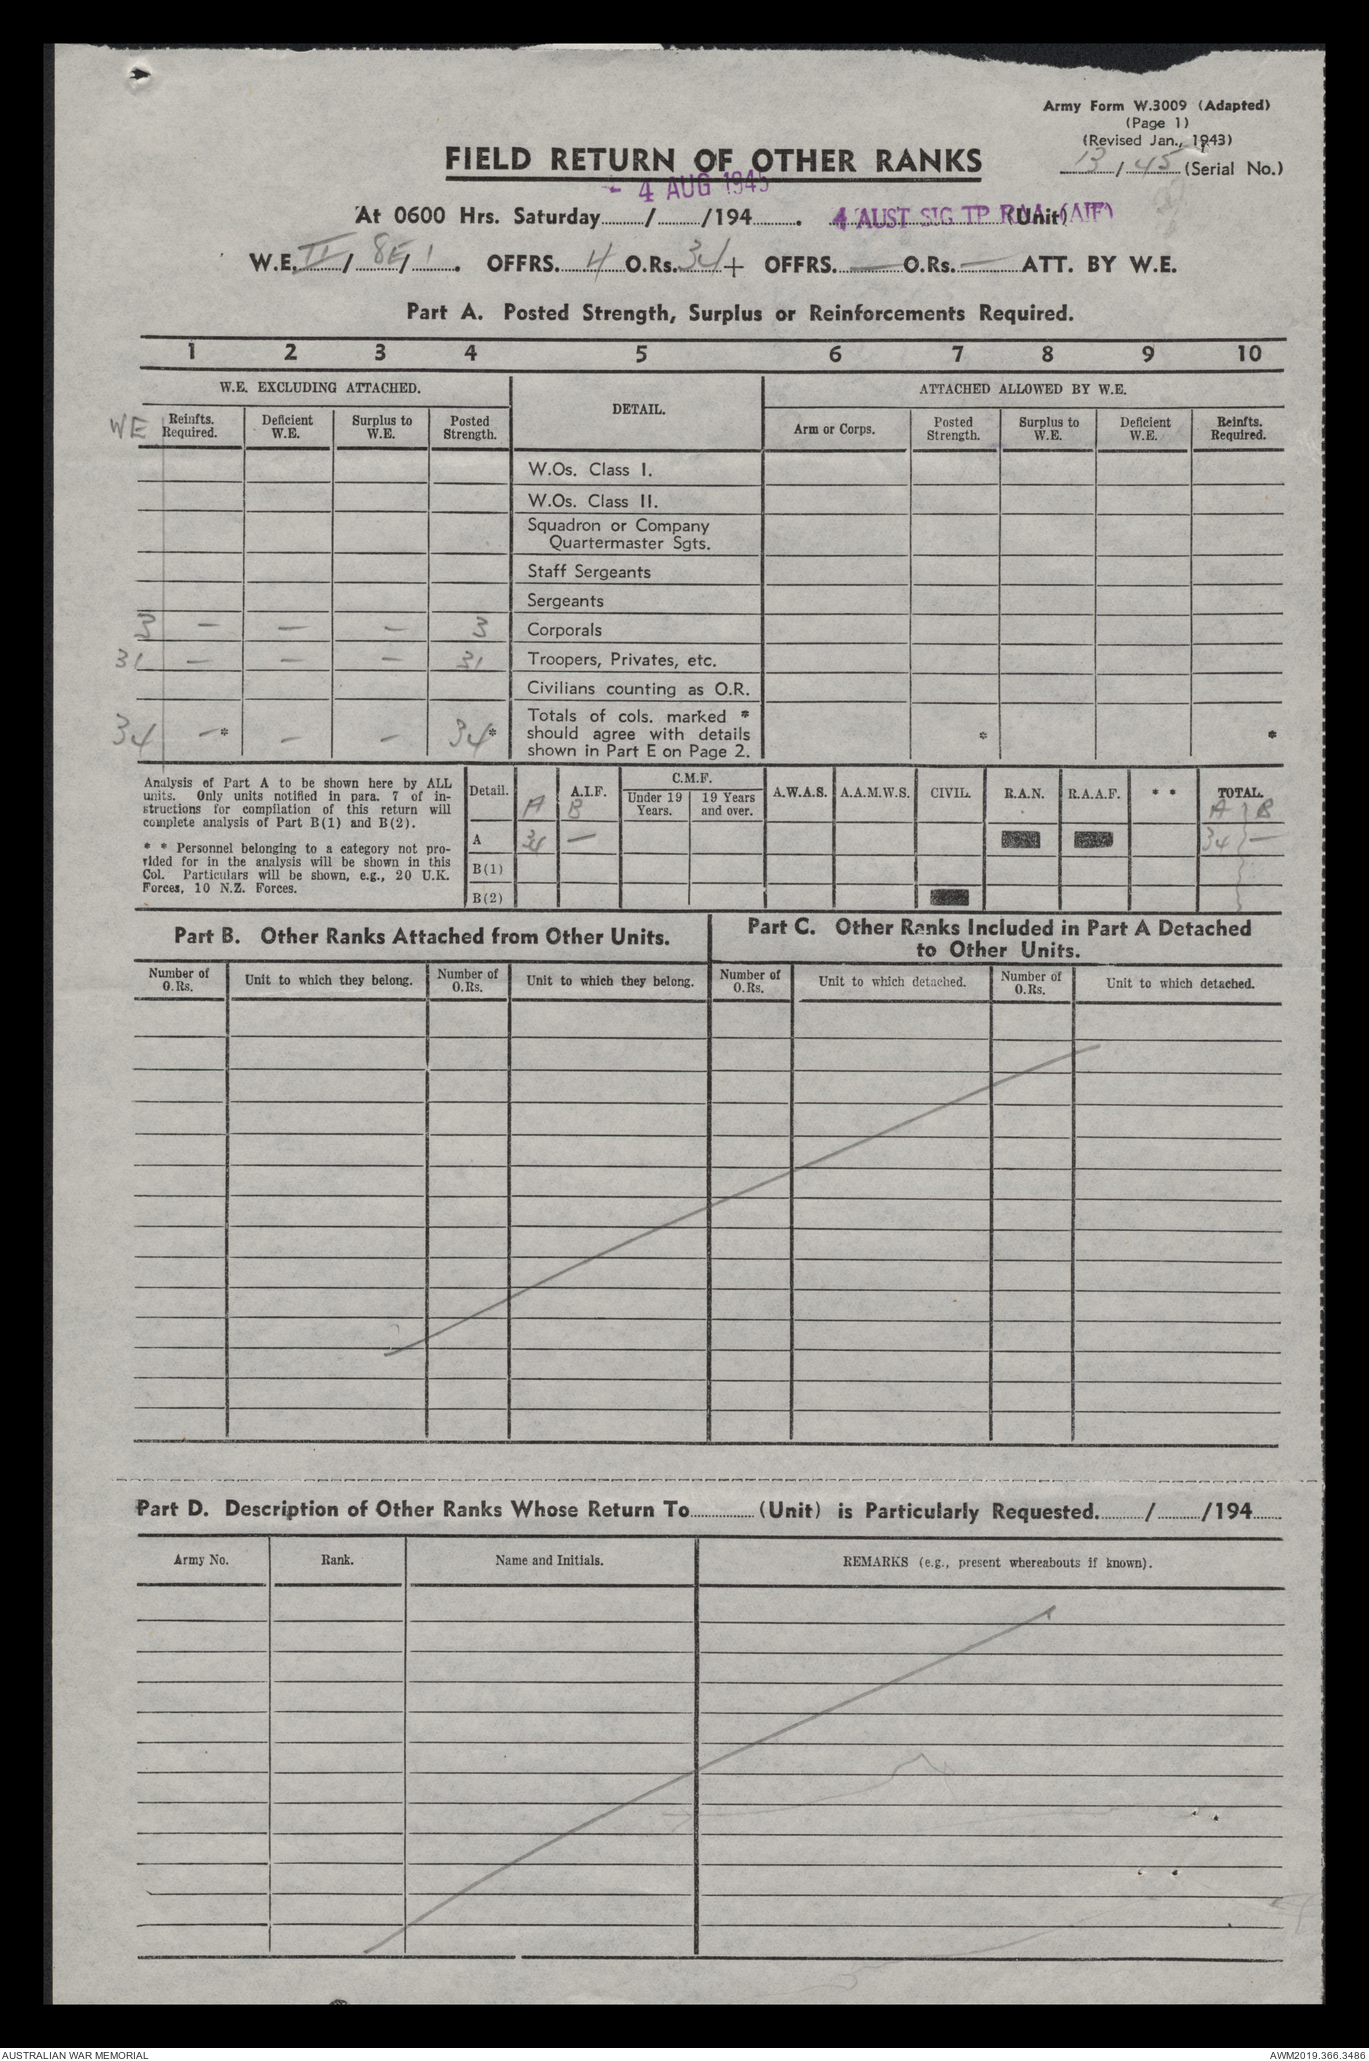 Army Form W.3009 (Adapted)
(Page 1)
(Revised Jan., 1943)
13 / 45 (Serial No.)
FIELD RETURN OF OTHER RANKS
- 4 AUG 1945
At 0600 Hrs. Saturday......../......../194........ 4 AUST SIG TP RAA (AIF) (Unit)
W.E. II / 8E / 1 . OFFRS. 4 O.Rs. 34 + OFFRS. — O.Rs. — ATT. BY W.E.
Part A. Posted Strength, Surplus or Reinforcements Required.
1 2 3 4 5 6 7 8 9 10
W.E. EXCLUDING ATTACHED. DETAIL. ATTACHED ALLOWED BY W.E.
WE Reinfts. Required. Deficient W.E. Surplus to W.E. Posted Strength. Arm or Corps. Posted Strength. Surplus to W.E. Deficient W.E. Reinfts. Required.
W.Os. Class I.
W.Os. Class II.
Squadron or Company
Quartermaster Sgts.
Staff Sergeants
Sergeants
3 — — — 3 Corporals
31 — — — 31 Troopers, Privates, etc.
Civilians counting as O.R.
Totals of cols. marked *
34 —* — — 34* should agree with details * *
shown in Part E on Page 2.
Analysis of Part A to be shown here by ALL
units. Only units notified in para. 7 of in-
structions for compilation of this return will
complete analysis of Part B(1) and B(2).
* * Personnel belonging to a category not pro-
vided for in the analysis will be shown in this
Col. Particulars will be shown, e.g., 20 U.K.
Forces, 10 N.Z. Forces.
Detail. A A.I.F. B C.M.F. Under 19 Years. 19 Years and over. A.W.A.S. A.A.M.W.S. CIVIL. R.A.N. R.A.A.F. * * TOTAL. A B
A 34 — 34 —
B(1)
B(2)
Part B. Other Ranks Attached from Other Units.
Part C. Other Ranks Included in Part A Detached
to Other Units.
Number of O.Rs. Unit to which they belong. Number of O.Rs. Unit to which they belong. Number of O.Rs. Unit to which detached. Number of O.Rs. Unit to which detached.
Part D. Description of Other Ranks Whose Return To............ (Unit) is Particularly Requested......../......../194......
Army No. Rank. Name and Initials. REMARKS (e.g., present whereabouts if known).
AUSTRALIAN WAR MEMORIAL AWM2019.366.3486